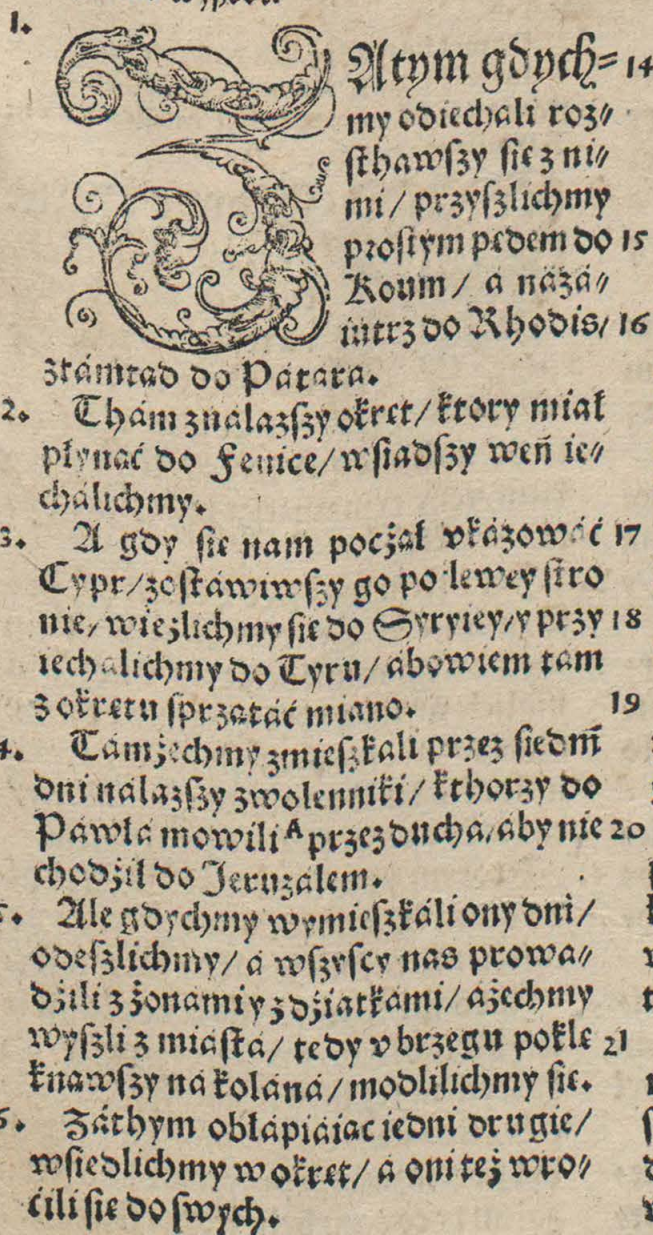 1.
ZAtym gdych⸗ 14
my odiechali roz⸗
sthawſzy ſie z ni⸗
mi / przyſzlichmy
proſtym pędem do 15
Koum / á názá⸗
iutrz do Rhodis / 16
ztámtąd do Pátárá.
2. Thám ználazſzy okręt / ktory miał
płynąć do Fenice / wſiadſzy weń ie⸗
chálichmy.
3. A gdy ſie nam począł vkázowáć 17
Cypr / zoſtáwiwſzy go po lewey ſtro
nie / wieźlichmy ſie do Syryiey / y przy 18
iechálichmy do Tyru / ábowiem tam
z okrętu ſprzątáć miano. 19
4. Támżechmy zmieſzkáli przez ſiedm̃
dni nálazſzy zwolenniki / kthorzy do
Páwłá mowili ᴬ przez duchá / áby nie 20
chodźił do Jeruzalem.
5. Ale gdychmy wymieſzkáli ony dni /
odeſzlichmy / á wſzyſcy nas prowá⸗
dźili z żonámi y z dźiatkámi / áżechmy
wyſzli z miáſtá / tedy v brzegu poklę 21
knąwſzy ná koláná / modlilichmy ſie.
6. Záthym obłápiáiąc iedni drugie /
wſiedlichmy w okręt / á oni też wro⸗
ćili ſie do ſwych.